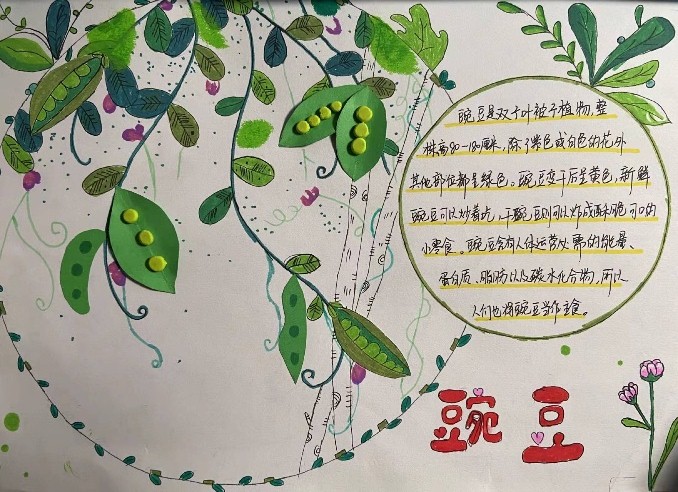 豌豆是双子叶被子植物，整
株高90-180厘米，除了紫色或白色的花外
其他部位都是绿色。豌豆变干后呈黄色，新鲜
豌豆可以炒着吃，干豌豆则可以炸成酥脆可口的
小零食。豌豆含有人体运营所需的能量、
蛋白质、脂肪以及碳水化合物，所以
人们也将豌豆当作主食。
豌豆